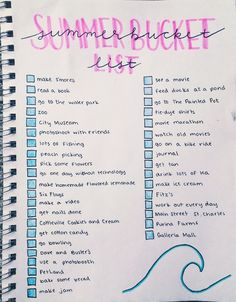 SUMMER BUCKET
summer bucket
LIST
list
make s'mores
read a book
go to the water park
zoo
City Museum
photoshoot with friends
lots of fishing
peach picking
pick some flowers
go one day without technology
make homemade flavored lemonade
Six Flags
make a video
get nails done
Cottleville Cookies and Cream
get cotton candy
go bowling
Dave and Buster's
use a photobooth
Petland
bake some bread
make jam
see a movie
feed ducks at a pond
go to The Painted Pot
tie-dye shirts
movie marathon
watch old movies
go on a bike ride
journal
get tan
drink lots of tea
make ice cream
Fitz's
work out every day
Main Street St. Charles
Purina Farms
Galleria Mall